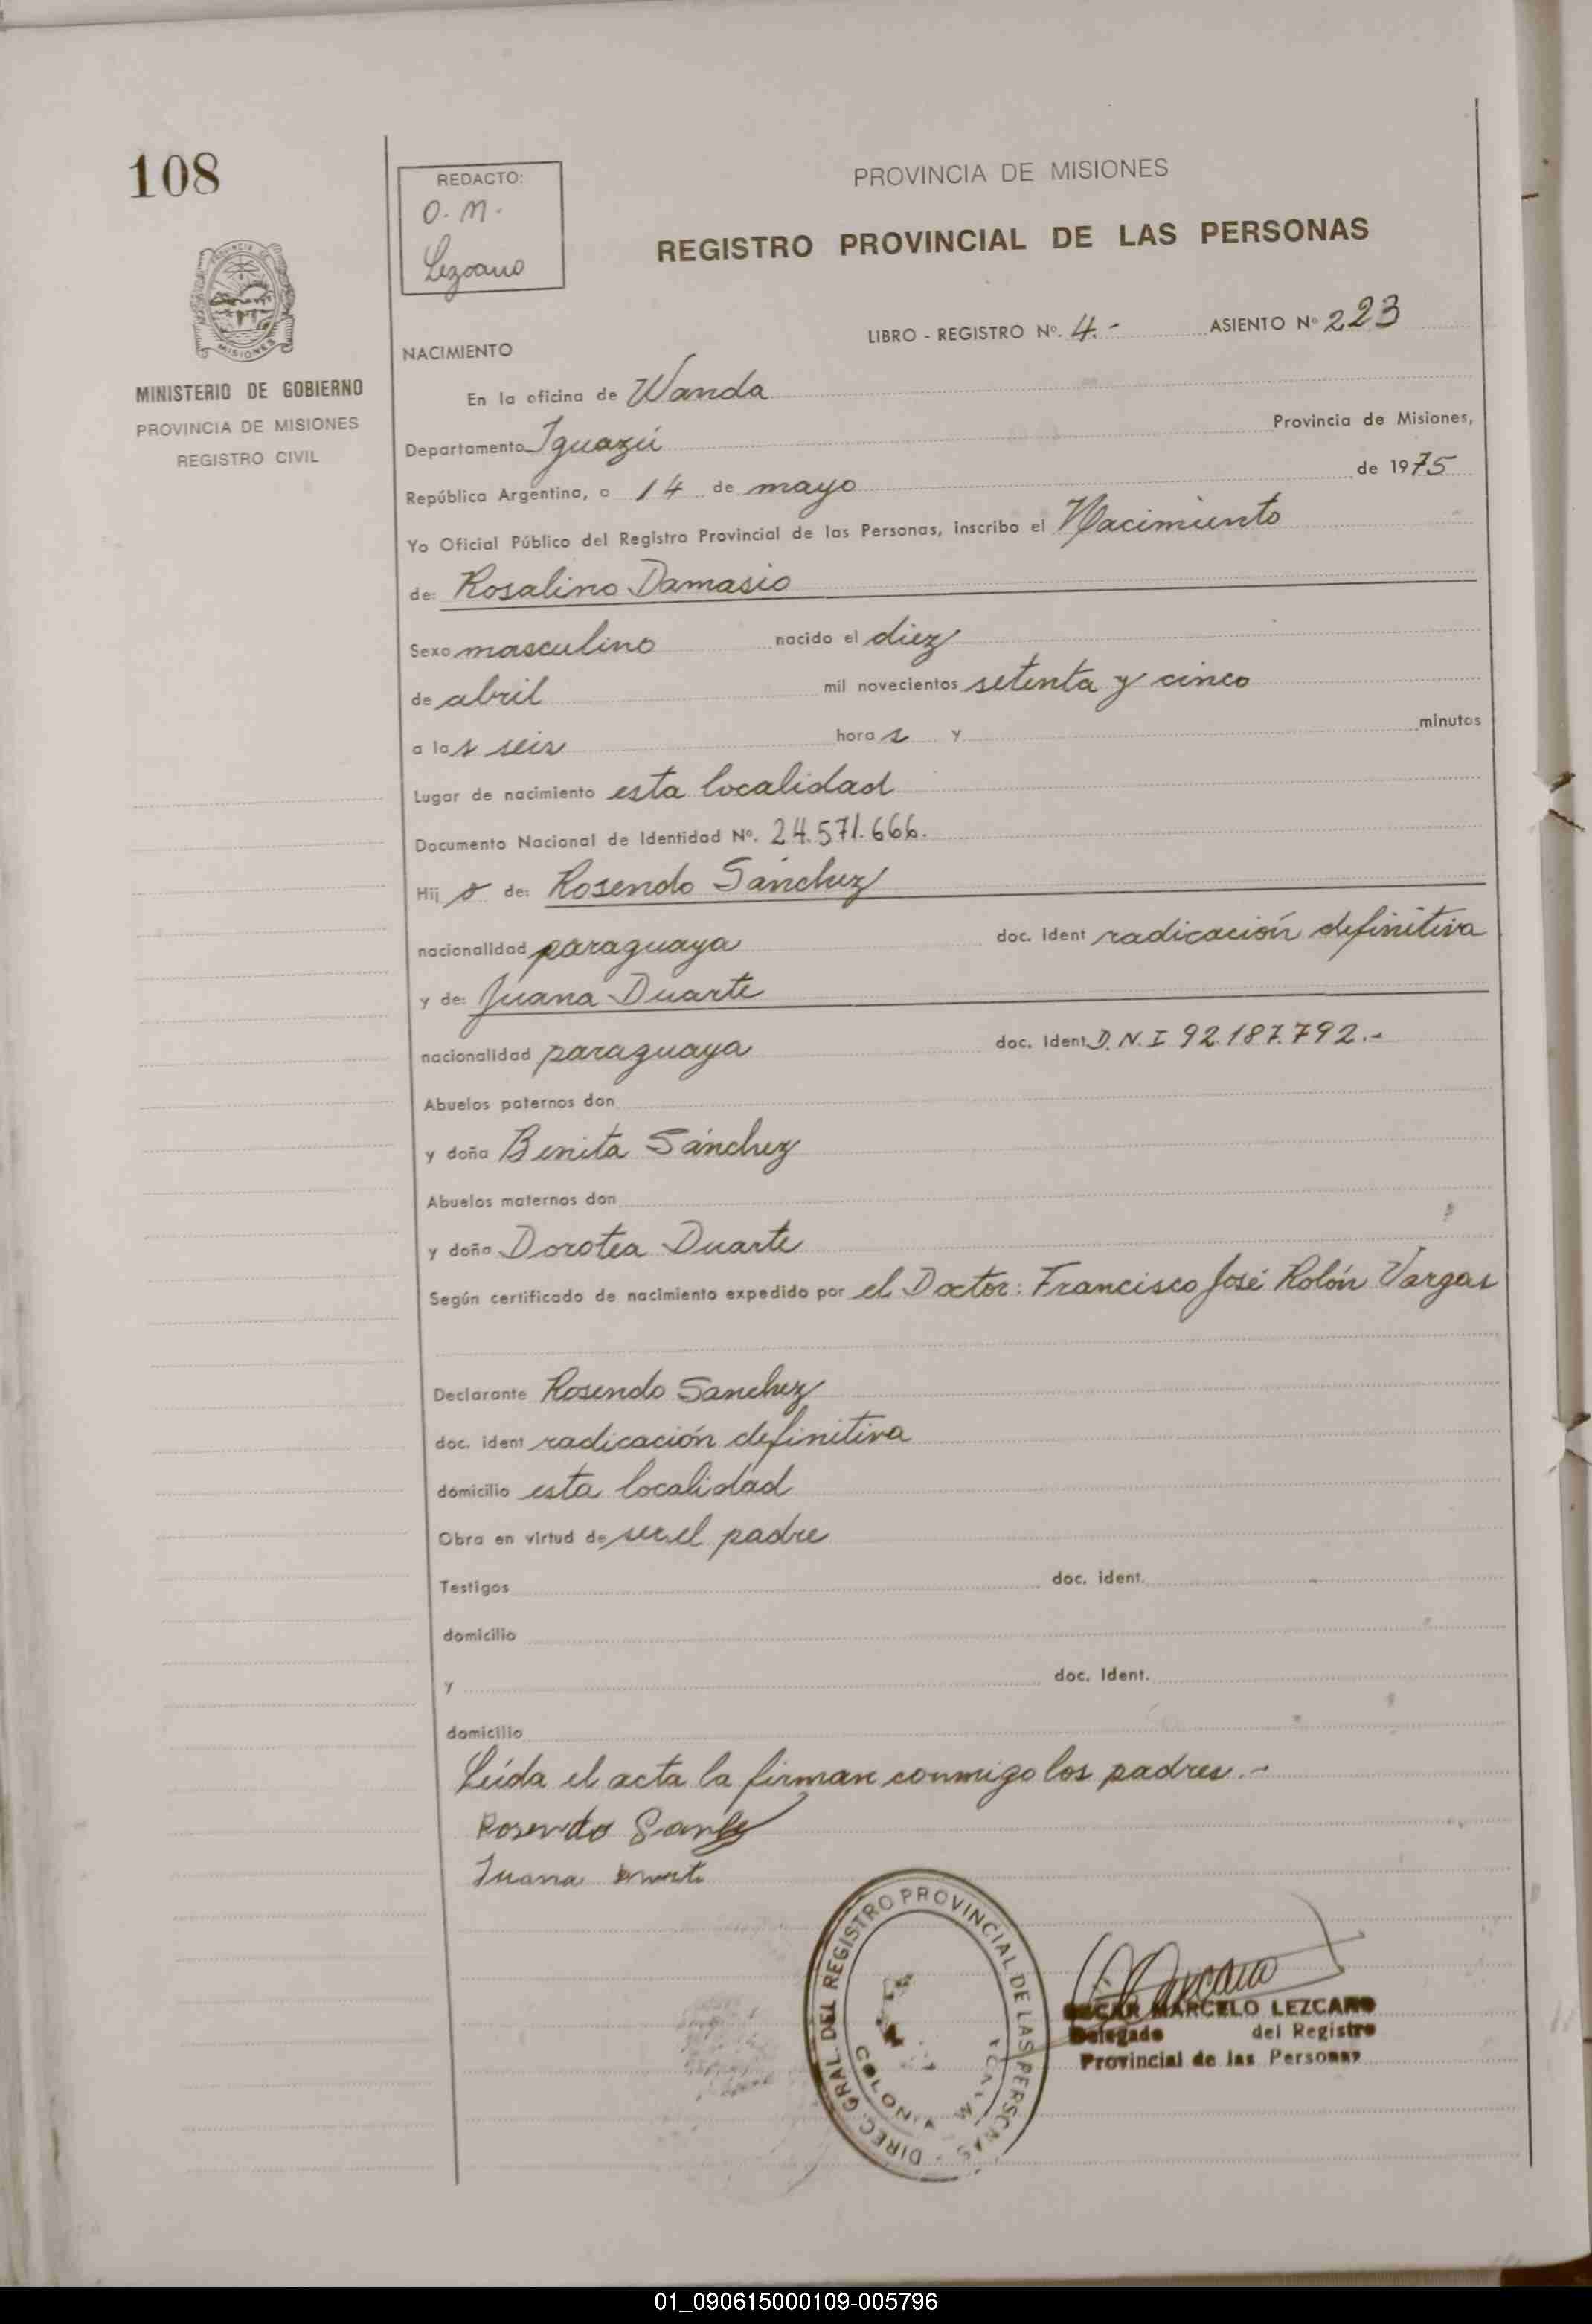 108
REDACTO:
O. M.
Lezcano
PROVINCIA DE MISIONES
REGISTRO PROVINCIAL DE LAS PERSONAS
MISIONES
MINISTERIO DE GOBIERNO
PROVINCIA DE MISIONES
REGISTRO CIVIL
LIBRO - REGISTRO Nº. 4.- ASIENTO Nº 223
NACIMIENTO
En la oficina de Wanda
Departamento Iguazú Provincia de Misiones,
República Argentina, a 14 de mayo de 1975
Yo Oficial Público del Registro Provincial de las Personas, inscribo el Nacimiento
de: Rosalino Damasio
Sexo masculino nacido el diez
de abril mil novecientos setenta y cinco
a las seis horas y minutos
Lugar de nacimiento esta localidad
Documento Nacional de Identidad Nº. 24.571.666.
Hijo de: Rosendo Sánchez
nacionalidad paraguaya doc. ident radicación definitiva
y de: Juana Duarte
nacionalidad paraguaya doc. Ident. D.N.I 92.187.792.-
Abuelos paternos don
y doña Benita Sánchez
Abuelos maternos don
y doña Dorotea Duarte
Según certificado de nacimiento expedido por el Doctor: Francisco José Rolón Vargas
Declarante Rosendo Sanchez
doc. ident radicación definitiva
domicilio esta localidad
Obra en virtud de ser el padre
Testigos doc. ident.
domicilio
y doc. Ident.
domicilio
Leída el acta la firman conmigo los padres.-
Rosendo
Juana
DIREC. GRAL. DEL REGISTRO PROVINCIAL DE LAS PERSONAS
COLONIA
OSCAR MARCELO LEZCANO
Delegado del Registro
Provincial de las Personas
01_090615000109-005796